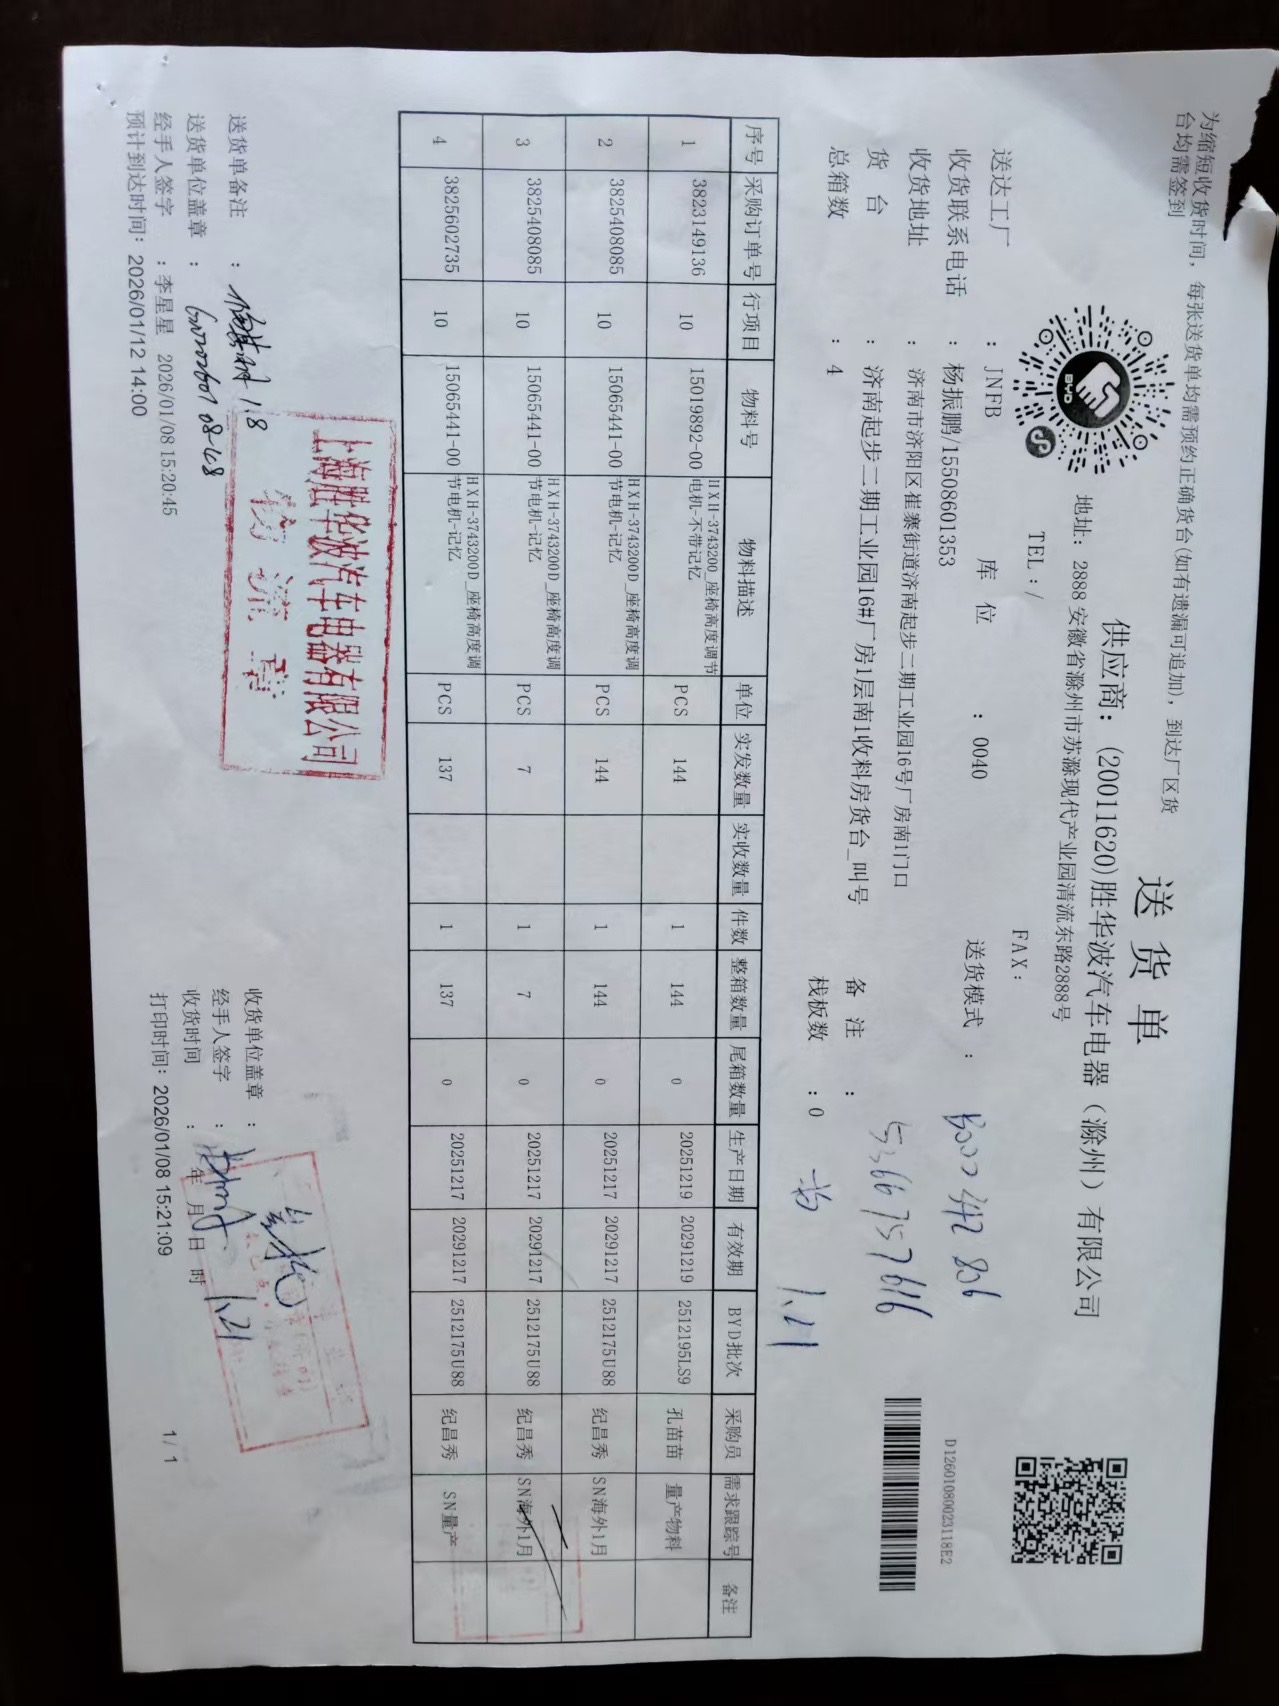 为缩短收货时间，每张送货单均需预约正确货台(如有遗漏可追加)，到达厂区货
台均需签到
送 货 单
供应商：(20011620)胜华波汽车电器（滁州）有限公司
地址：2888 安徽省滁州市苏滁现代产业园清流东路2888号
TEL：/ FAX：
BYD
D12601080023118E2
送达工厂 ：JNFB 库 位 ：0040 送货模式 ：
收货联系电话 ：杨振鹏/15508601353
收货地址 ：济南市济阳区崔寨街道济南起步二期工业园16号厂房南1门口
货 台 ：济南起步二期工业园16#厂房1层南1收料房货台_叫号 备 注 ：
总箱数 ：4 栈板数 ：0
5366757616
1.21
序号 采购订单号 行项目 物料号 物料描述 单位 实发数量 实收数量 件数 整箱数量 尾箱数量 生产日期 有效期 BYD批次 采购员 需求跟踪号 备注
1 3823149136 10 15019892-00 HXH-3743200_座椅高度调节电机-不带记忆 PCS 144 1 144 0 20251219 20291219 2512195LS9 孔苗苗 量产物料
2 3825408085 10 15065441-00 HXH-3743200D_座椅高度调节电机-记忆 PCS 144 1 144 0 20251217 20291217 2512175U88 纪昌秀 SN海外1月
3 3825408085 10 15065441-00 HXH-3743200D_座椅高度调节电机-记忆 PCS 7 1 7 0 20251217 20291217 2512175U88 纪昌秀 SN海外1月
4 3825602735 10 15065441-00 HXH-3743200D_座椅高度调节电机-记忆 PCS 137 1 137 0 20251217 20291217 2512175U88 纪昌秀 SN量产
上海胜华波汽车电器有限公司
物流章
送货单备注 ： 1.8
送货单位盖章 ：
经手人签字 ：李星星 2026/01/08 15:20:45
预计到达时间：2026/01/12 14:00
收货单位盖章 ：
经手人签字 ： 1.21
收货时间 ： 年 月 日 时
打印时间：2026/01/08 15:21:09
1/ 1